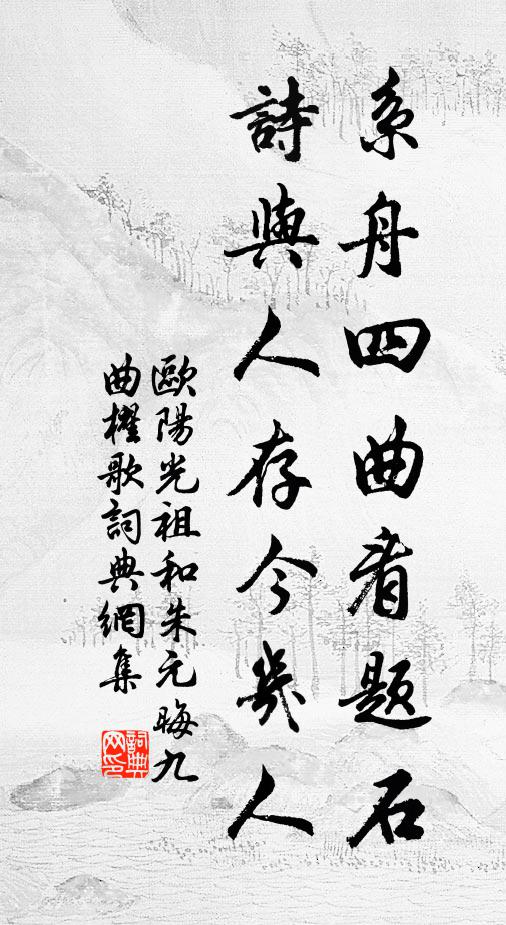 系舟四曲看题石
詩與人存今幾人
歐陽光祖和朱元晦九
曲櫂歌詞典網集
詞典
网印